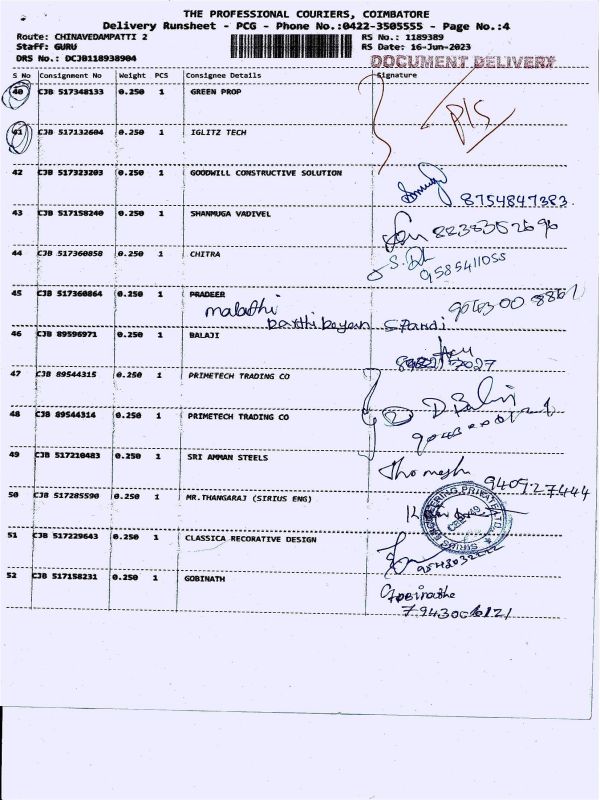 THE PROFESSIONAL COURIERS, COIMBATORE
Delivery Runsheet - PCG - Phone No.:0422-3505555 - Page No.:4
Route: CHINAVEDAMPATTI 2 RS No.: 1189389
Staff: GURU RS Date: 16-Jun-2023
DRS No.: DCJB118938904 DOCUMENT DELIVERY
S No Consignment No Weight PCS Consignee Details Signature
40 CJB 517348133 0.250 1 GREEN PROP
41 CJB 517132604 0.250 1 IGLITZ TECH
P/S
42 CJB 517323203 0.250 1 GOODWILL CONSTRUCTIVE SOLUTION
8754847383
43 CJB 517158240 0.250 1 SHANMUGA VADIVEL
44 CJB 517360858 0.250 1 CHITRA
9585411055
45 CJB 517360864 0.250 1 PRADEER
malathi
46 CJB 89596971 0.250 1 BALAJI
47 CJB 89544315 0.250 1 PRIMETECH TRADING CO
48 CJB 89544314 0.250 1 PRIMETECH TRADING CO
49 CJB 517210483 0.250 1 SRI AMMAN STEELS
Thomesh
50 CJB 517285590 0.250 1 MR.THANGARAJ (SIRIUS ENG)
51 CJB 517229643 0.250 1 CLASSICA RECORATIVE DESIGN
52 CJB 517158231 0.250 1 GOBINATH